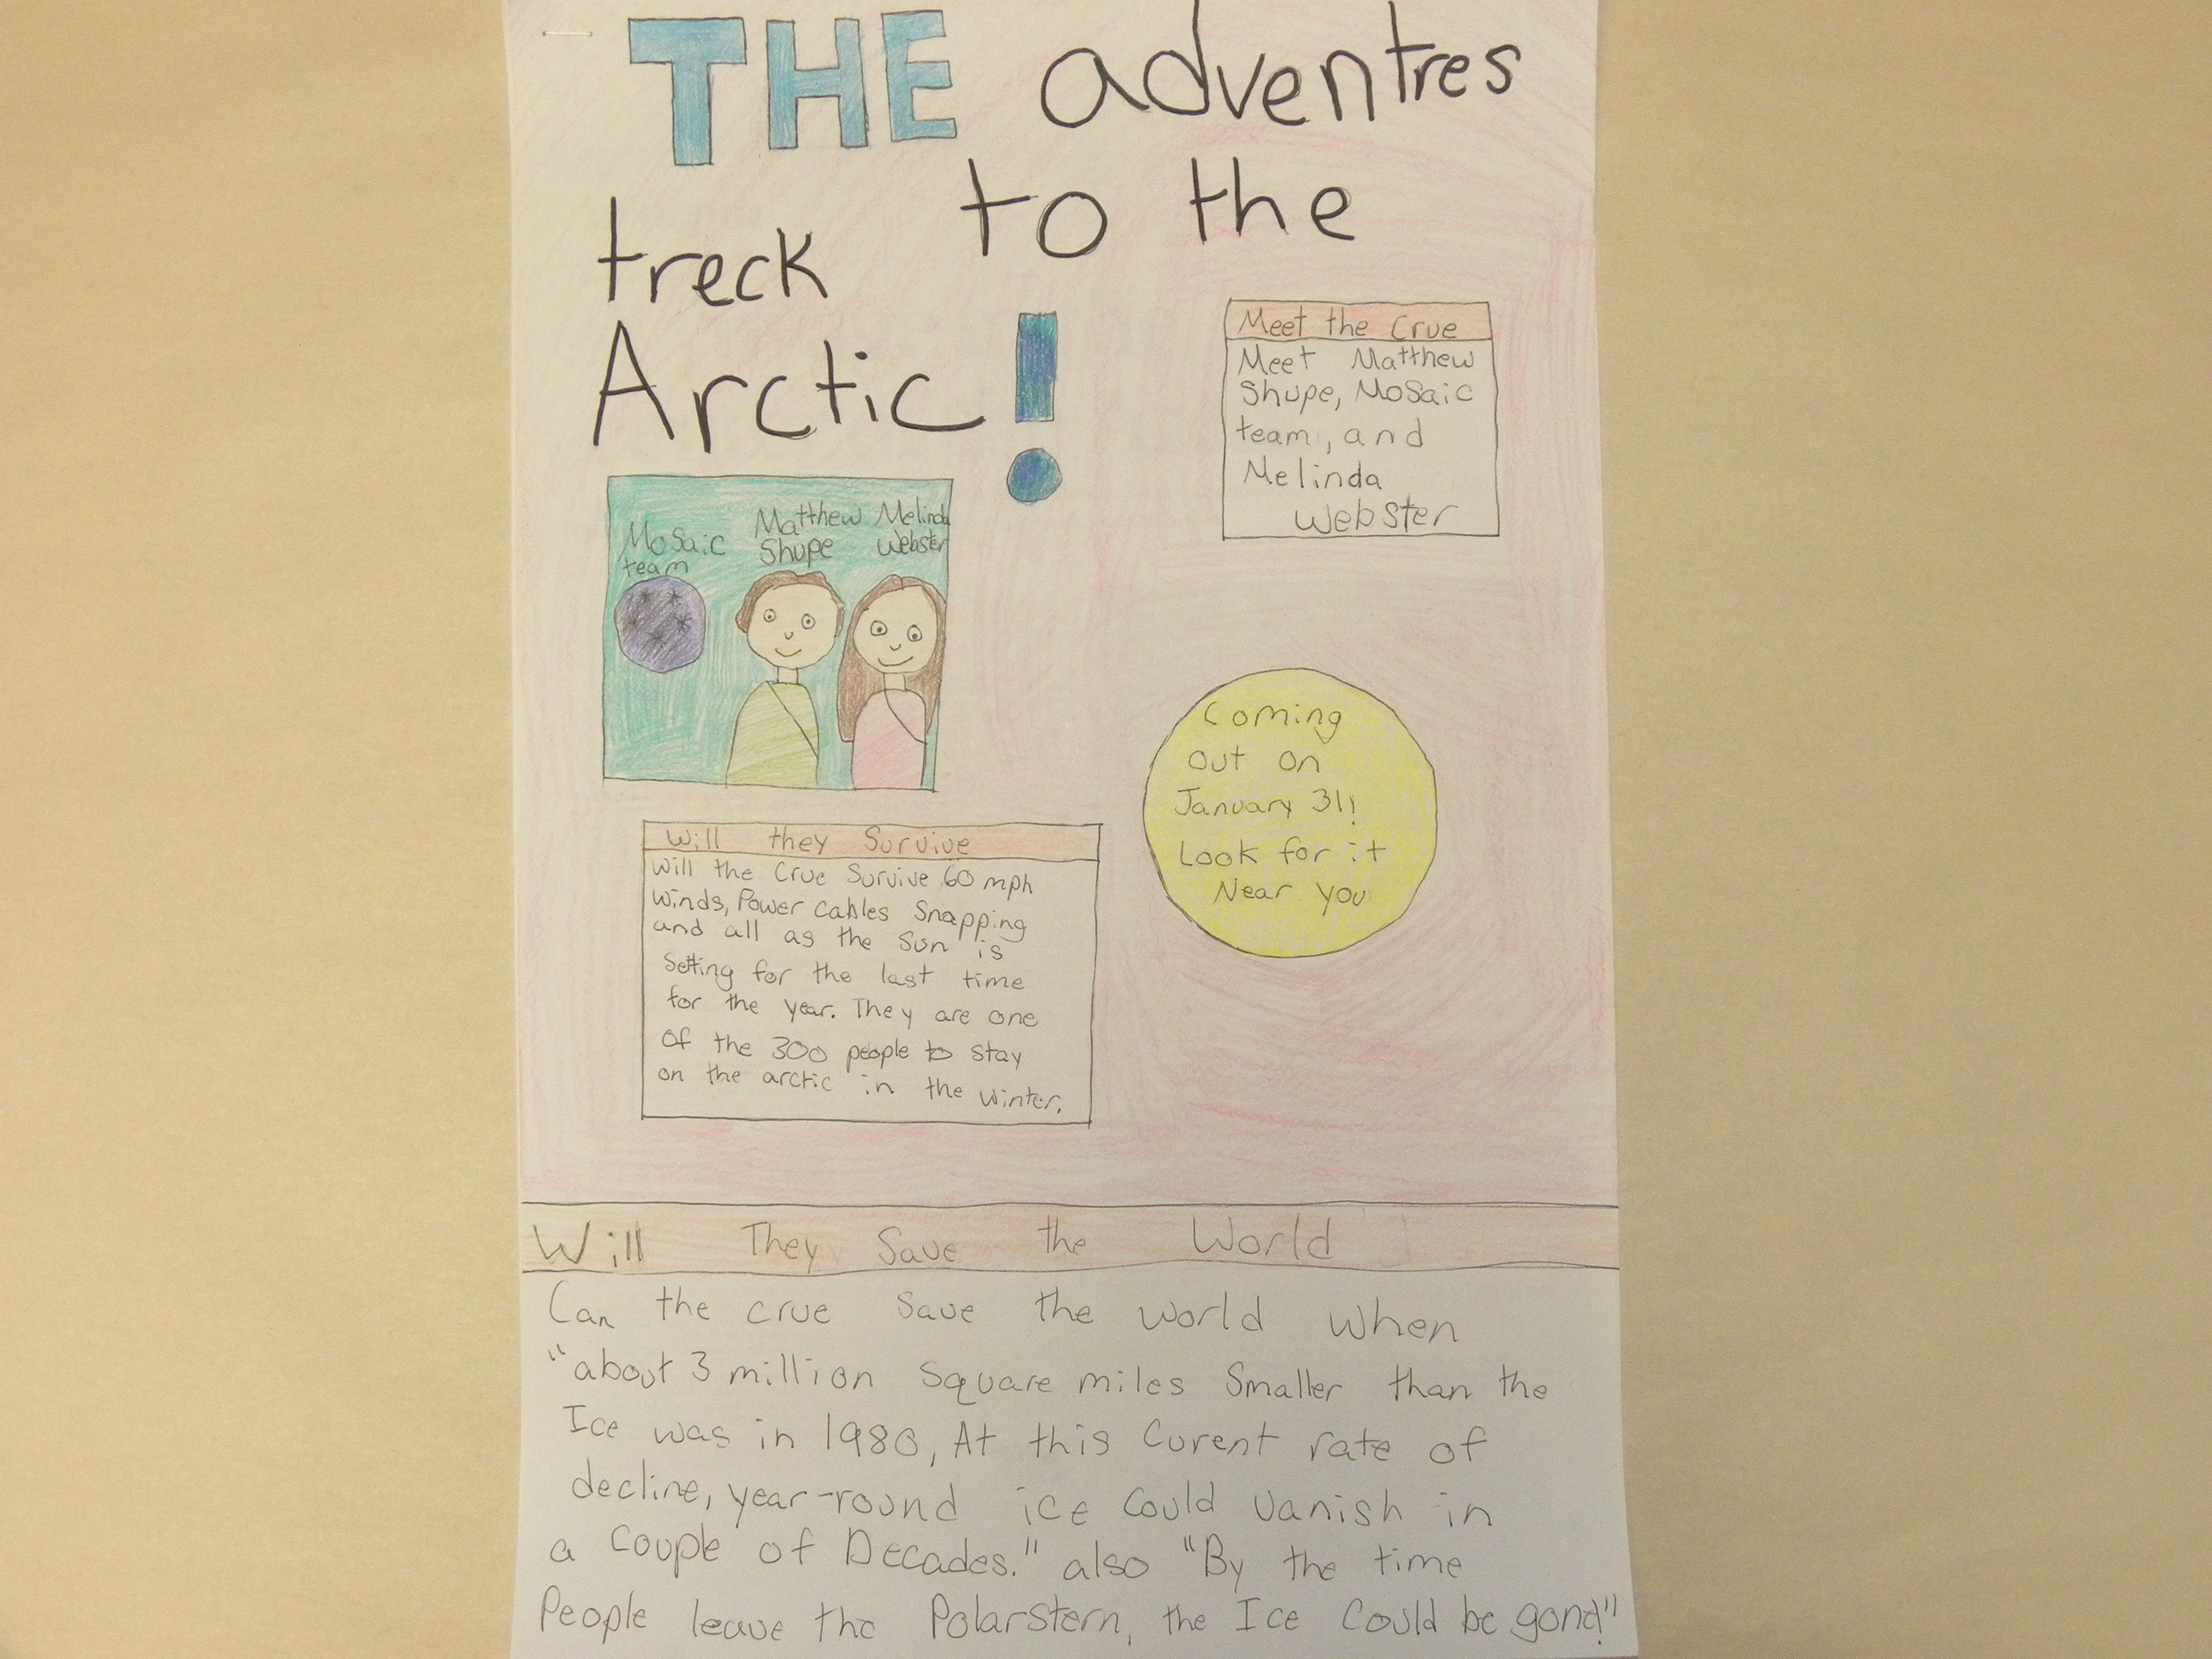 THE adventres
treck to the
Arctic!
Meet the Crue
Meet Matthew
Shupe, Mosaic
team, and
Melinda
Webster
Mosaic
team
Matthew
Shupe
Melinda
Webster
Coming
out on
January 31!
Look for it
Near you
Will they Survive
Will the Crue Survive 60 mph
winds, Power cables Snapping
and all as the sun is
Setting for the last time
for the year. They are one
of the 300 people to stay
on the arctic in the winter.
Will They Save the World
Can the crue save the world when
"about 3 million square miles smaller than the
Ice was in 1980, At this Curent rate of
decline, year-round ice could vanish in
a couple of Decades." also "By the time
People leave the Polarstern, the Ice could be gone!"